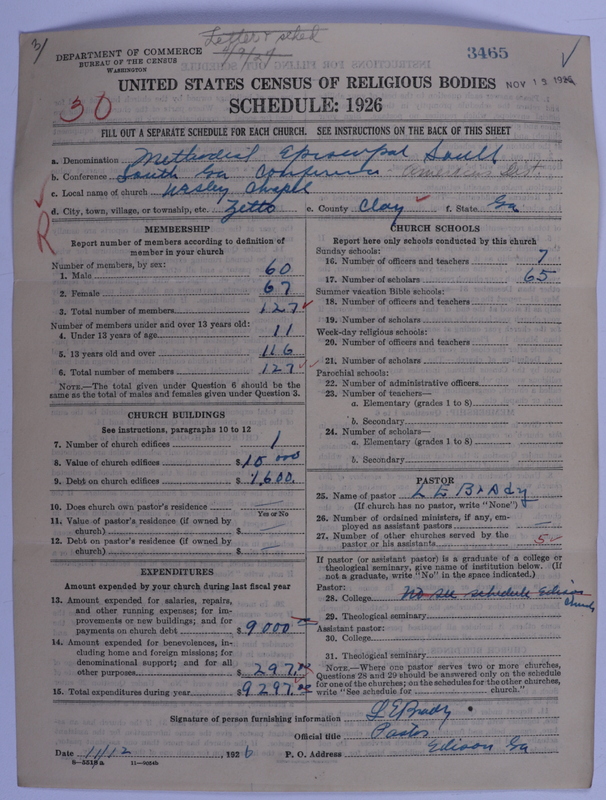 3/
Letter & sched
4/9/27
3465
DEPARTMENT OF COMMERCE
BUREAU OF THE CENSUS
WASHINGTON
UNITED STATES CENSUS OF RELIGIOUS BODIES
NOV 19 1926
30
SCHEDULE: 1926
FILL OUT A SEPARATE SCHEDULE FOR EACH CHURCH. SEE INSTRUCTIONS ON THE BACK OF THIS SHEET
a. Denomination Methodist Episcopal South
b. Conference South Ga Conference Americus Dist.
c. Local name of church Wesley Chapel
d. City, town, village, or township, etc. Zetto e. County Clay f. State Ga
R
MEMBERSHIP
Report number of members according to definition of
member in your church
Number of members, by sex:
1. Male 60
2. Female 67
3. Total number of members 127
Number of members under and over 13 years old:
4. Under 13 years of age 11
5. 13 years old and over 116
6. Total number of members 127
NOTE.—The total given under Question 6 should be
same as the total of males and females given under Question 3.
CHURCH BUILDINGS
See instructions, paragraphs 10 to 12
7. Number of church edifices 1
8. Value of church edifices $10 000
9. Debt on church edifices $1,600.
10. Does church own pastor's residence —
Yes or No
11. Value of pastor's residence (if owned by
church) $ —
12. Debt on pastor's residence (if owned by
church) $ —
EXPENDITURES
Amount expended by your church during last fiscal year
13. Amount expended for salaries, repairs,
and other running expenses; for im-
provements or new buildings; and for
payments on church debt $9000
14. Amount expended for benevolences, in-
cluding home and foreign missions; for
denominational support; and for all
other purposes $297.00
15. Total expenditures during year $9297.00
CHURCH SCHOOLS
Report here only schools conducted by this church
Sunday schools:
16. Number of officers and teachers 7
17. Number of scholars 65
Summer vacation Bible schools:
18. Number of officers and teachers
19. Number of scholars
Week-day religious schools:
20. Number of officers and teachers
21. Number of scholars
Parochial schools:
22. Number of administrative officers
23. Number of teachers—
a. Elementary (grades 1 to 8)
b. Secondary
24. Number of scholars—
a. Elementary (grades 1 to 8)
b. Secondary
PASTOR
25. Name of pastor L E Brady
(If church has no pastor, write "None")
26. Number of ordained ministers, if any, em-
ployed as assistant pastors —
27. Number of other churches served by the
pastor or his assistants 5
If pastor (or assistant pastor) is a graduate of a college or
theological seminary, give name of institution below. (If
not a graduate, write "No" in the space indicated.)
Pastor:
28. College No see schedule Edison
church
29. Theological seminary
Assistant pastor:
30. College
31. Theological seminary
NOTE.—Where one pastor serves two or more churches,
Questions 28 and 29 should be answered only on the schedule
for one of the churches; on the schedules for the other churches,
write "See schedule for church."
Signature of person furnishing information L E Brady
Official title Pastor
Date 11/12, 1926 P. O. Address Edison Ga
8—5518 a 11—9064b